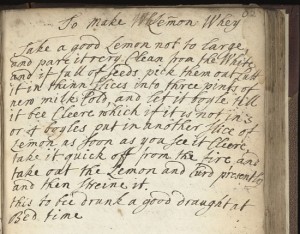 82
To Make Lemon Whey
Take a good Lemon not to large
and pare it very Clean from the White
and if full of seeds pick them out cutt
it in thinn slices into three pints of
new milk Cold, and let it boyle till
it bee Cleere which if it is not in 3
or 4 boyles put in another slice of
Lemon as soon as you see it Cleere
take it quick off from the fire and
take out the Lemon and Curd presently
and then streine it.
this to bee drunk a good draught at
Bed time